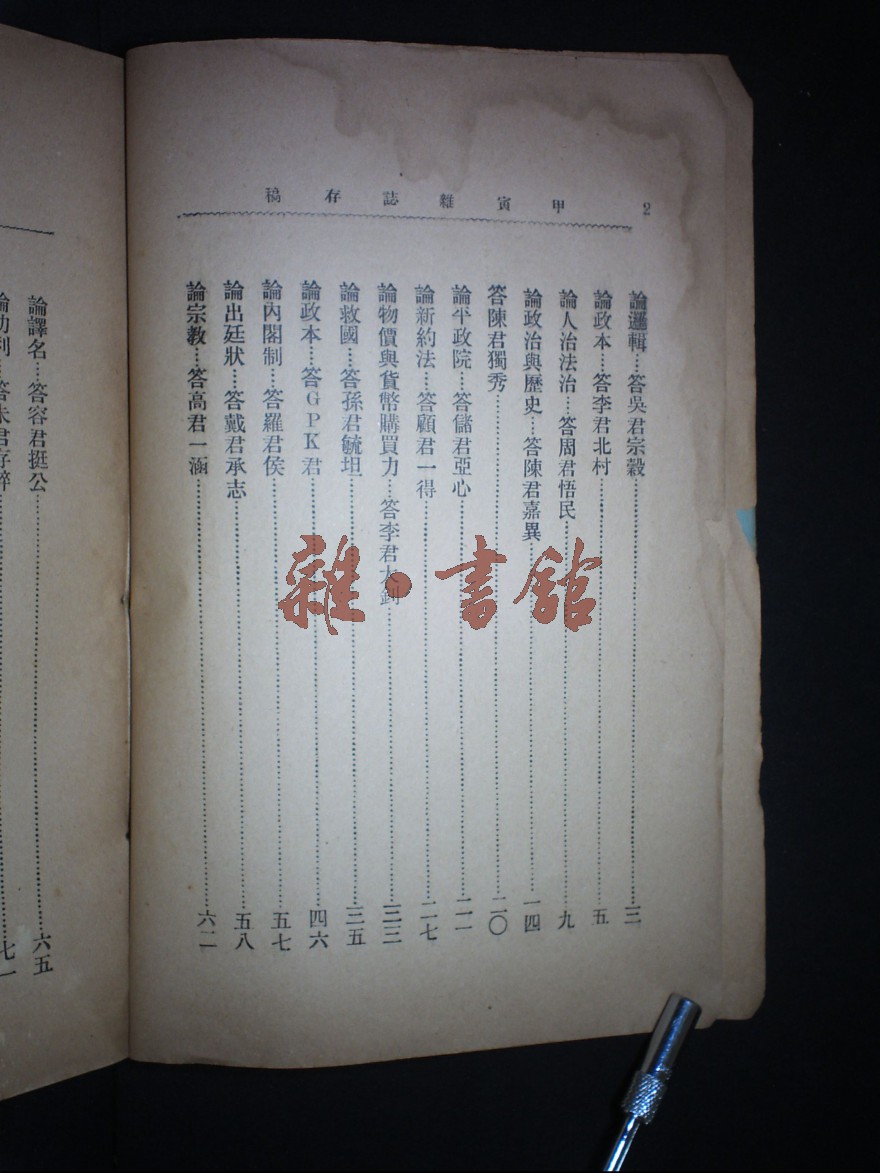 甲寅雜誌存稿 2
論邏輯…答吳君宗穀……三
論政本…答李君北村……五
論人治法治…答周君悟民……九
論政治與歷史…答陳君嘉異……一四
答陳君獨秀……二〇
論平政院…答儲君亞心……二一
論新約法…答顧君一得……二七
論物價與貨幣購買力…答李君大釗……三三
論救國…答孫君毓坦……三五
論政本…答GPK君……四六
論內閣制…答羅君侯……五七
論出廷狀…答戴君承志……五八
論宗教…答高君一涵……六二
論譯名…答容君挺公……六五
答朱君存粹……七一
雜·書館